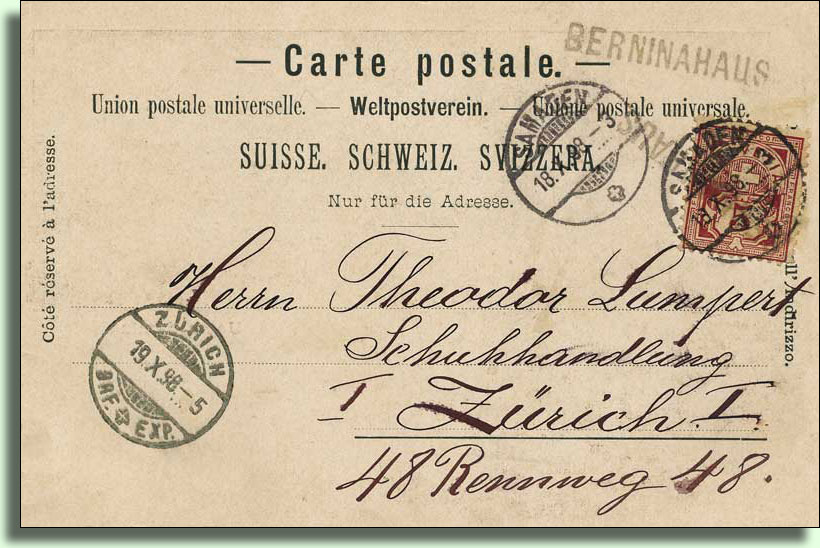 BERNINAHAUS
— Carte postale. —
Union postale universelle. — Weltpostverein. — Unione postale universale.
SUISSE. SCHWEIZ. SVIZZERA.
Nur für die Adresse.
Côté réservé à l'adresse.
SAMADEN
18.X.98.-3
SAMADEN
Herrn Theodor Lumpert
Schuhhandlung
I Zürich. I.
48 Rennweg 48.
ZÜRICH
19.X.98.-5
BRF. EXP.
all'Indirizzo.